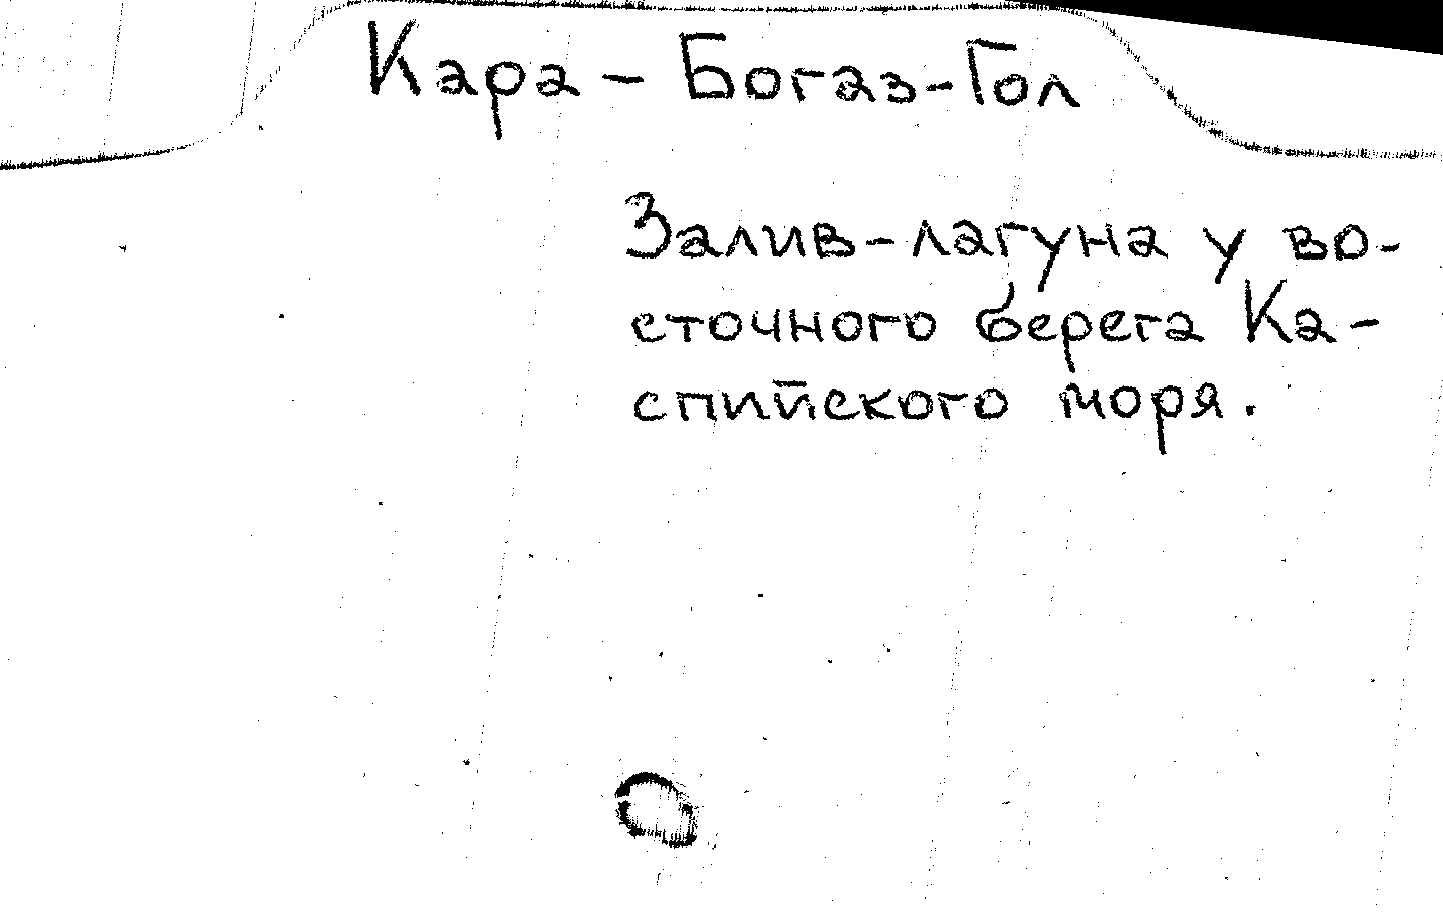 Кара - Богаз-Гол
Залив-лагуна у во-
сточного берега Ка-
спийского моря.